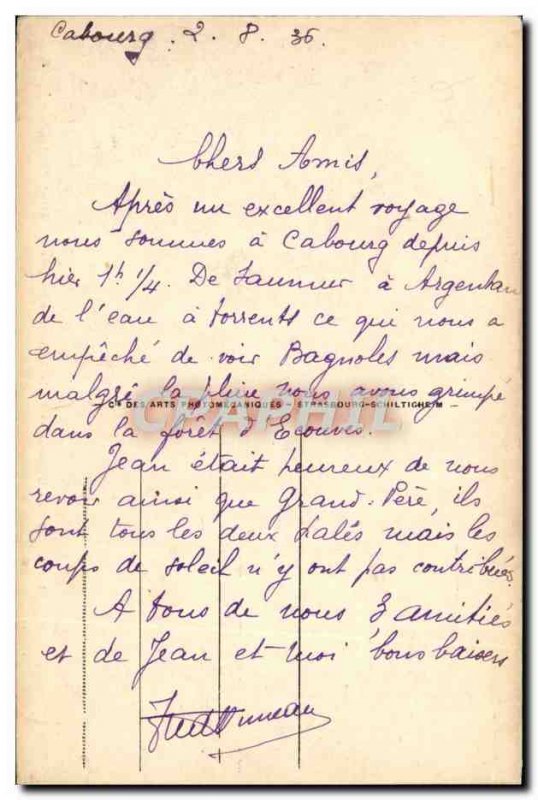 Cabourg. 2. 8. 36.
Chers Amis,
Après un excellent voyage
nous sommes à Cabourg depuis
hier 1h 1/4. De Saumur à Argentan
de l'eau à torrents ce qui nous a
empêché de voir Bagnoles mais
malgré la pluie nous avons grimpé
Cie DES ARTS PHOTOMÉCANIQUES - STRASBOURG-SCHILTIGHEIM
CPAPHIL
dans la forêt d'Ecouves.
Jean était heureux de nous
revoir ainsi que Grand. Père, ils
sont tous les deux halés mais les
coups de soleil n'y ont pas contribués.
A tous de nous 3 amitiés
et de Jean et moi bons baisers